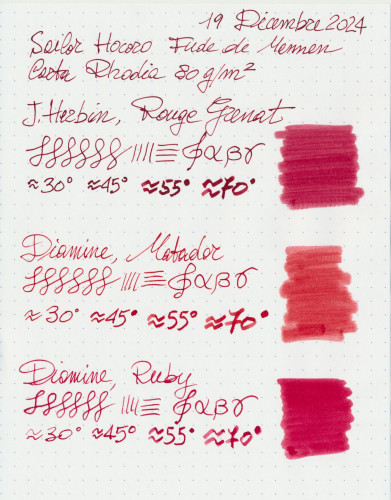 19 Dicembre 2024
Sailor Hocoro Fude de Mennen
Carta Rhodia 80 g/m²
J. Herbin, Rouge Grenat
αβγ
≈30° ≈45° ≈55° ≈70°
Diamine, Matador
αβγ
≈30° ≈45° ≈55° ≈70°
Diamine, Ruby
αβγ
≈30° ≈45° ≈55° ≈70°